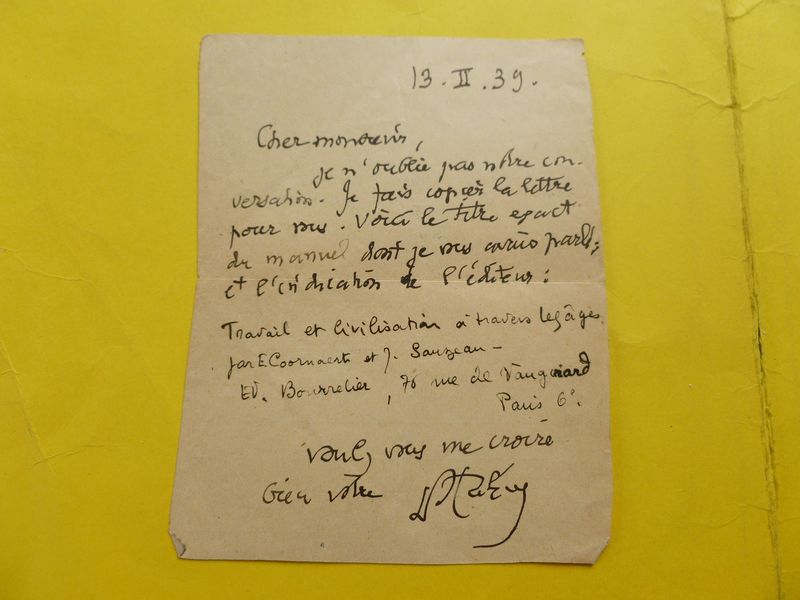 13. II. 39.
Cher monsieur,
je n'oublie pas notre con-
versation. Je fais copier la lettre
pour vous. Voici le titre exact
du manuel dont je vous avais parlé,
et l'indication de l'éditeur:
Travail et civilisation à travers les âges
par E. Coornaert et J. Sauzeau -
Ed. Bourrelier, 76 rue de Vaugirard
Paris 6e.
Veuillez vous me croire
bien vôtre